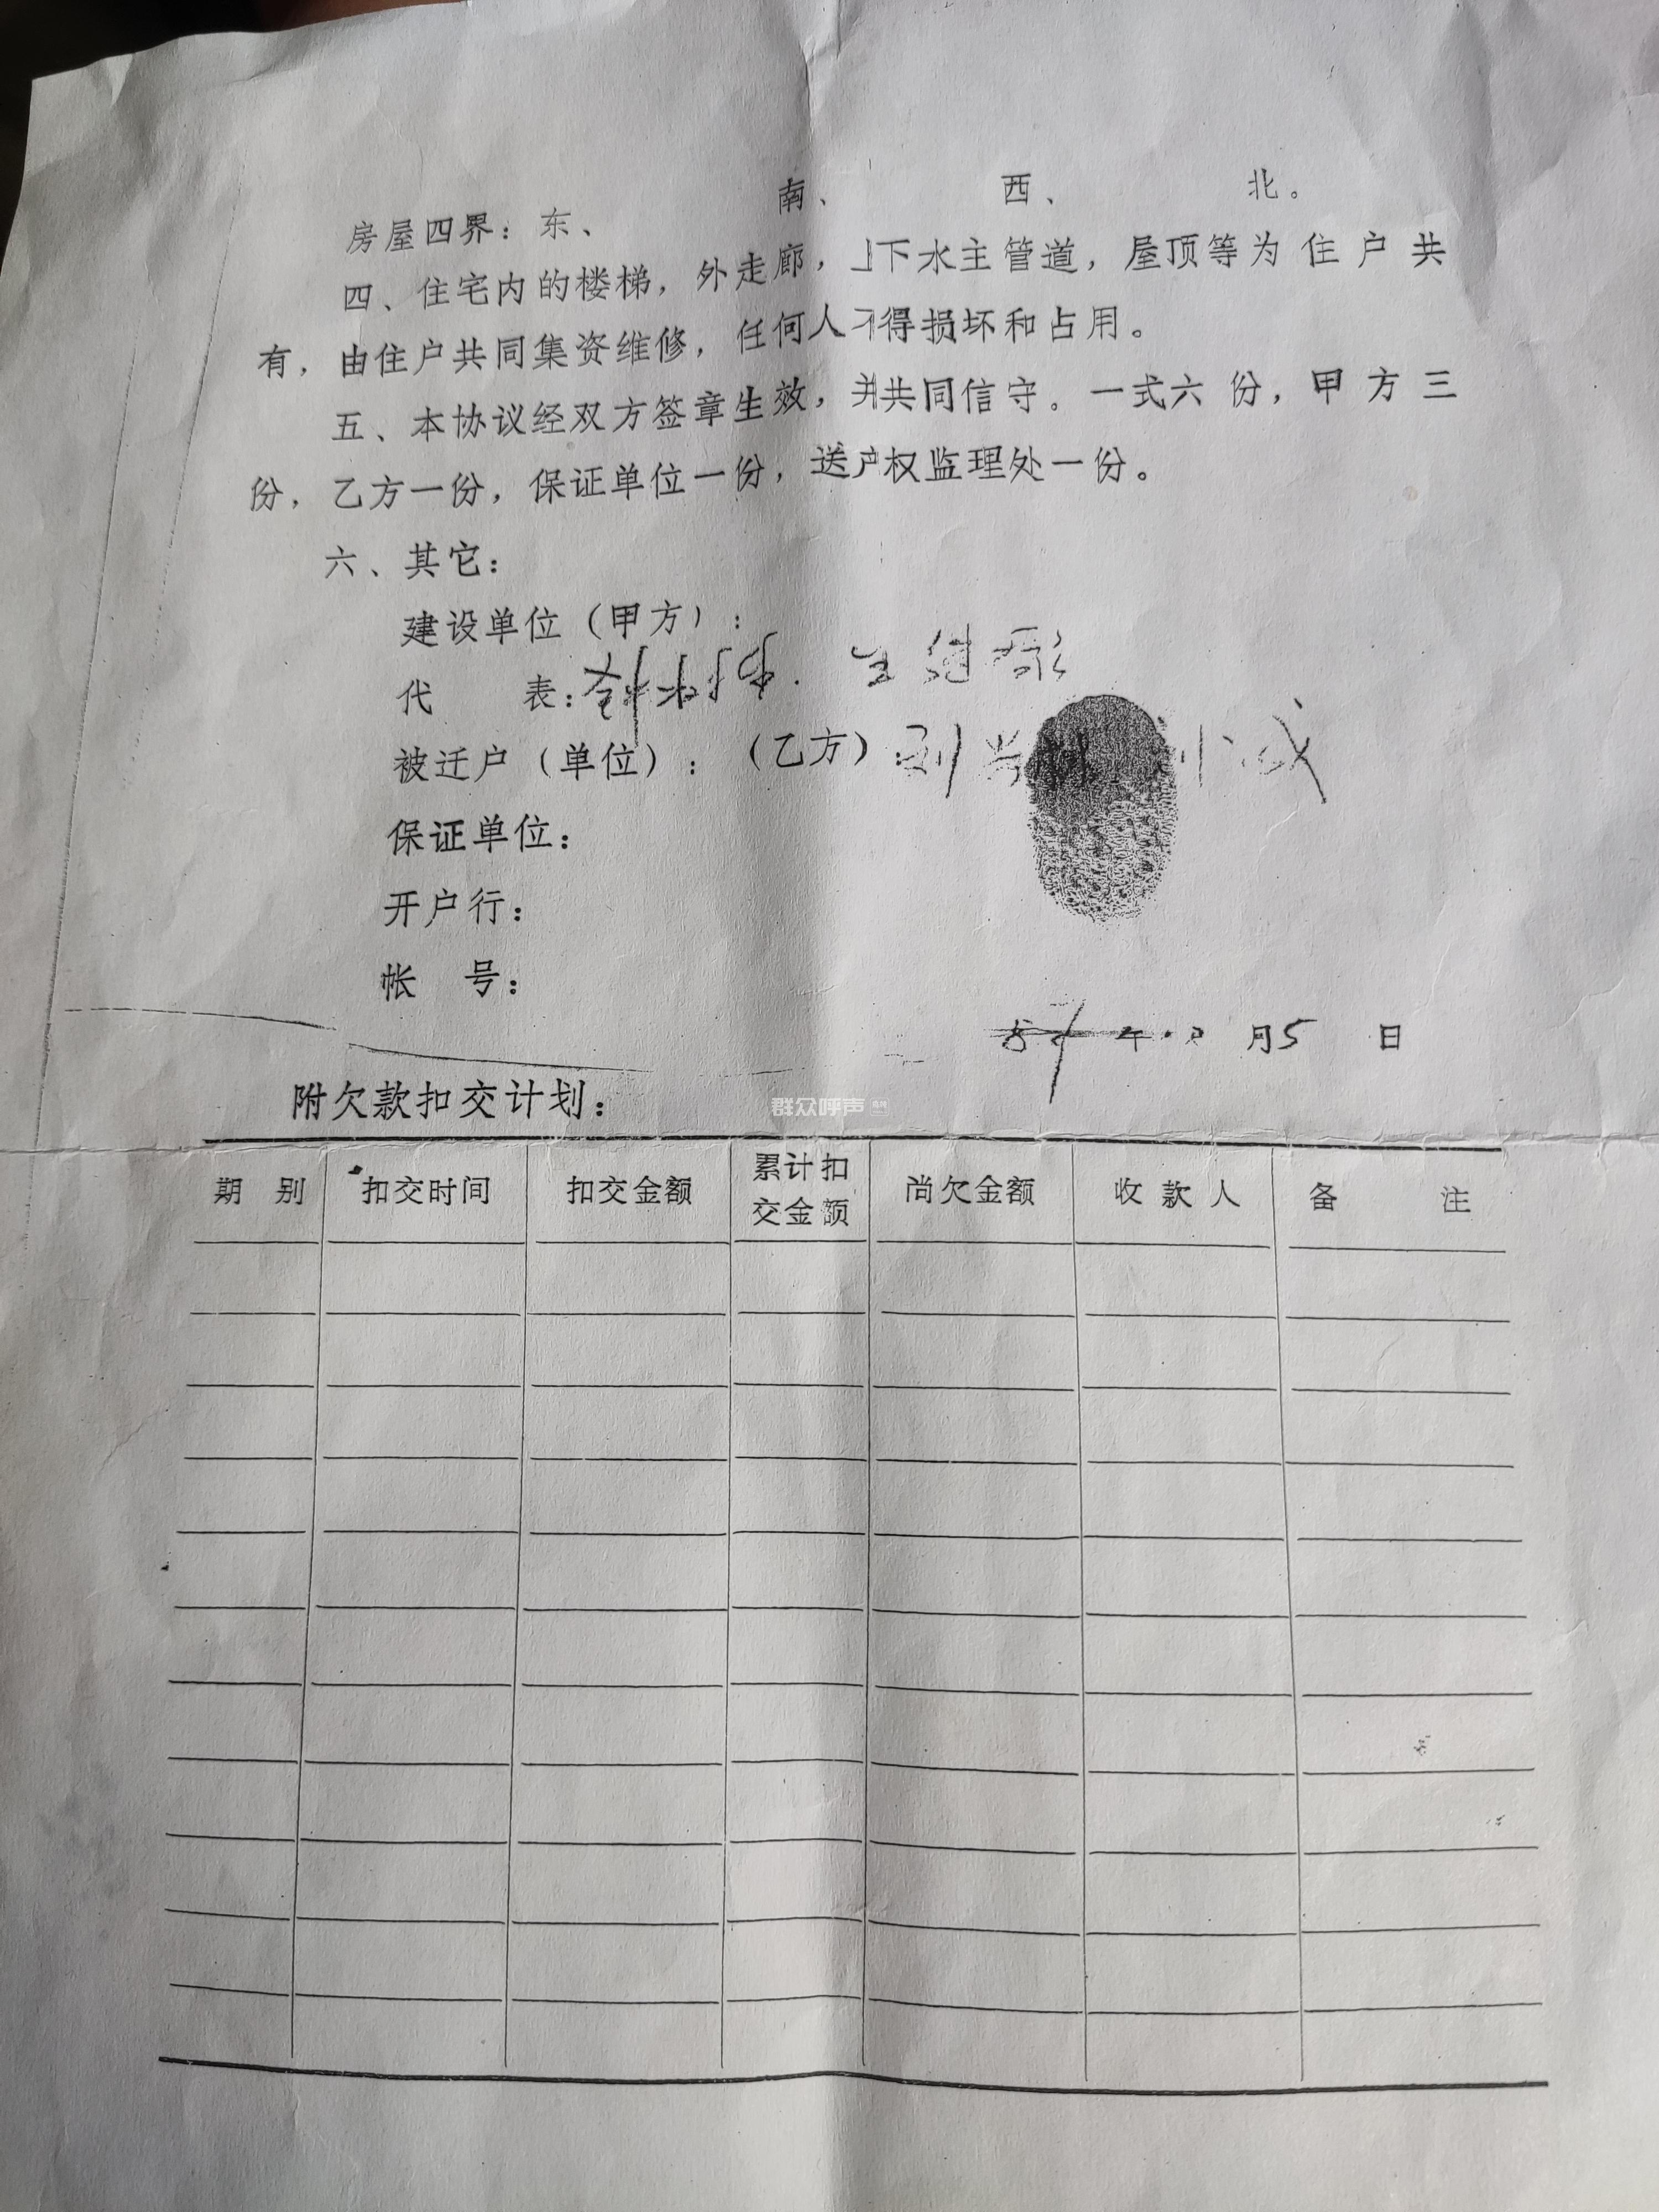 房屋四界：东、 南、 西、 北。
四、住宅内的楼梯，外走廊，上下水主管道，屋顶等为住户共
有，由住户共同集资维修，任何人不得损坏和占用。
五、本协议经双方签章生效，并共同信守。一式六份，甲方三
份，乙方一份，保证单位一份，送产权监理处一份。
六、其它：
建设单位（甲方）：
代 表：
被迁户（单位）：（乙方）：刘
保证单位：
开户行：
帐 号：
年 月5 日
附欠款扣交计划：
群众呼声
期 别 扣交时间 扣交金额 累计扣交金额 尚欠金额 收款人 备 注